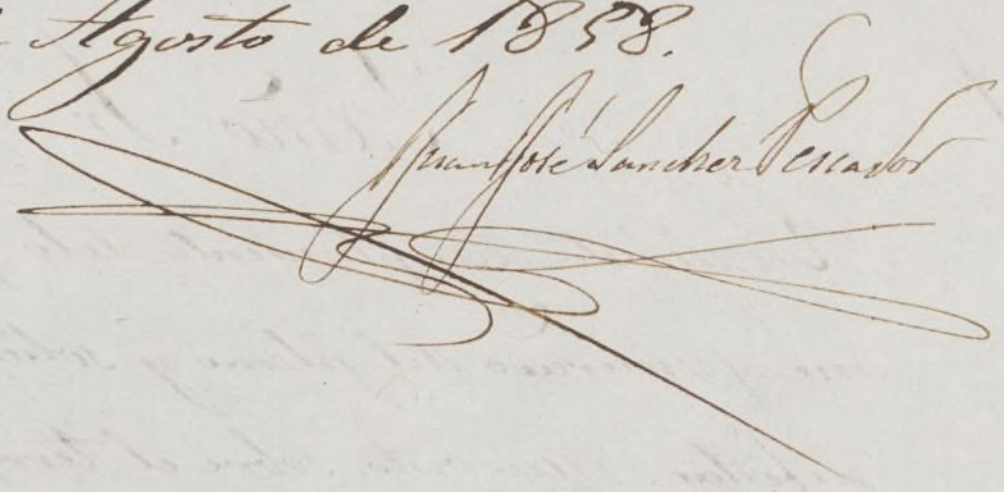 Agosto de 1858.
Juan José Sanchez Pescador